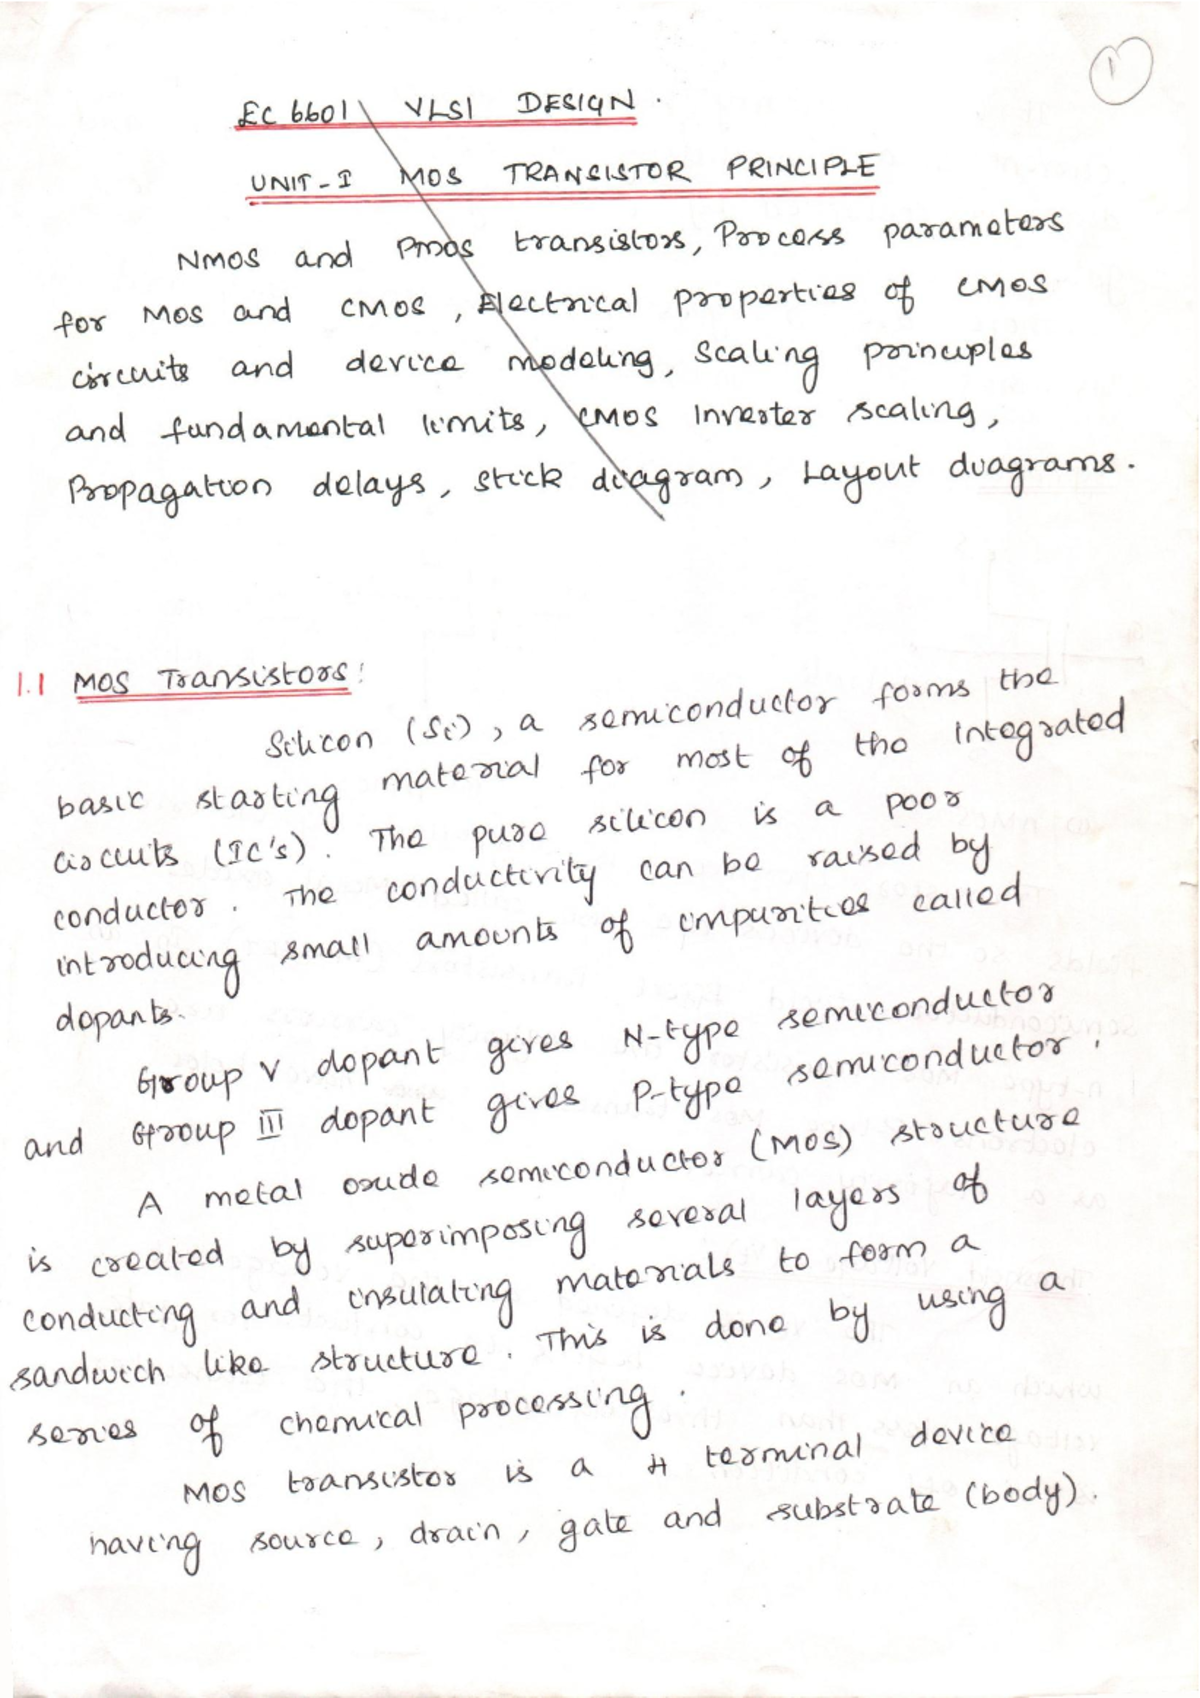 1
EC 6601 VLSI DESIGN.
UNIT-I MOS TRANSISTOR PRINCIPLE
NMOS and PMOS transistors, Process parameters
for MOS and CMOS, Electrical properties of CMOS
circuits and device modeling, Scaling principles
and fundamental limits, CMOS Inverter scaling,
Propagation delays, stick diagram, Layout diagrams.
1.1 MOS Transistors:
Silicon (Si), a semiconductor forms the
basic starting material for most of the integrated
circuits (IC's). The pure silicon is a poor
conductor. The conductivity can be raised by
introducing small amounts of impurities called
dopants.
Group V dopant gives N-type semiconductor
and Group III dopant gives P-type semiconductor.
A metal oxide semiconductor (MOS) structure
is created by superimposing several layers of
conducting and insulating materials to form a
sandwich like structure. This is done by using a
series of chemical processing.
MOS transistor is a 4 terminal device
having source, drain, gate and substrate (body).